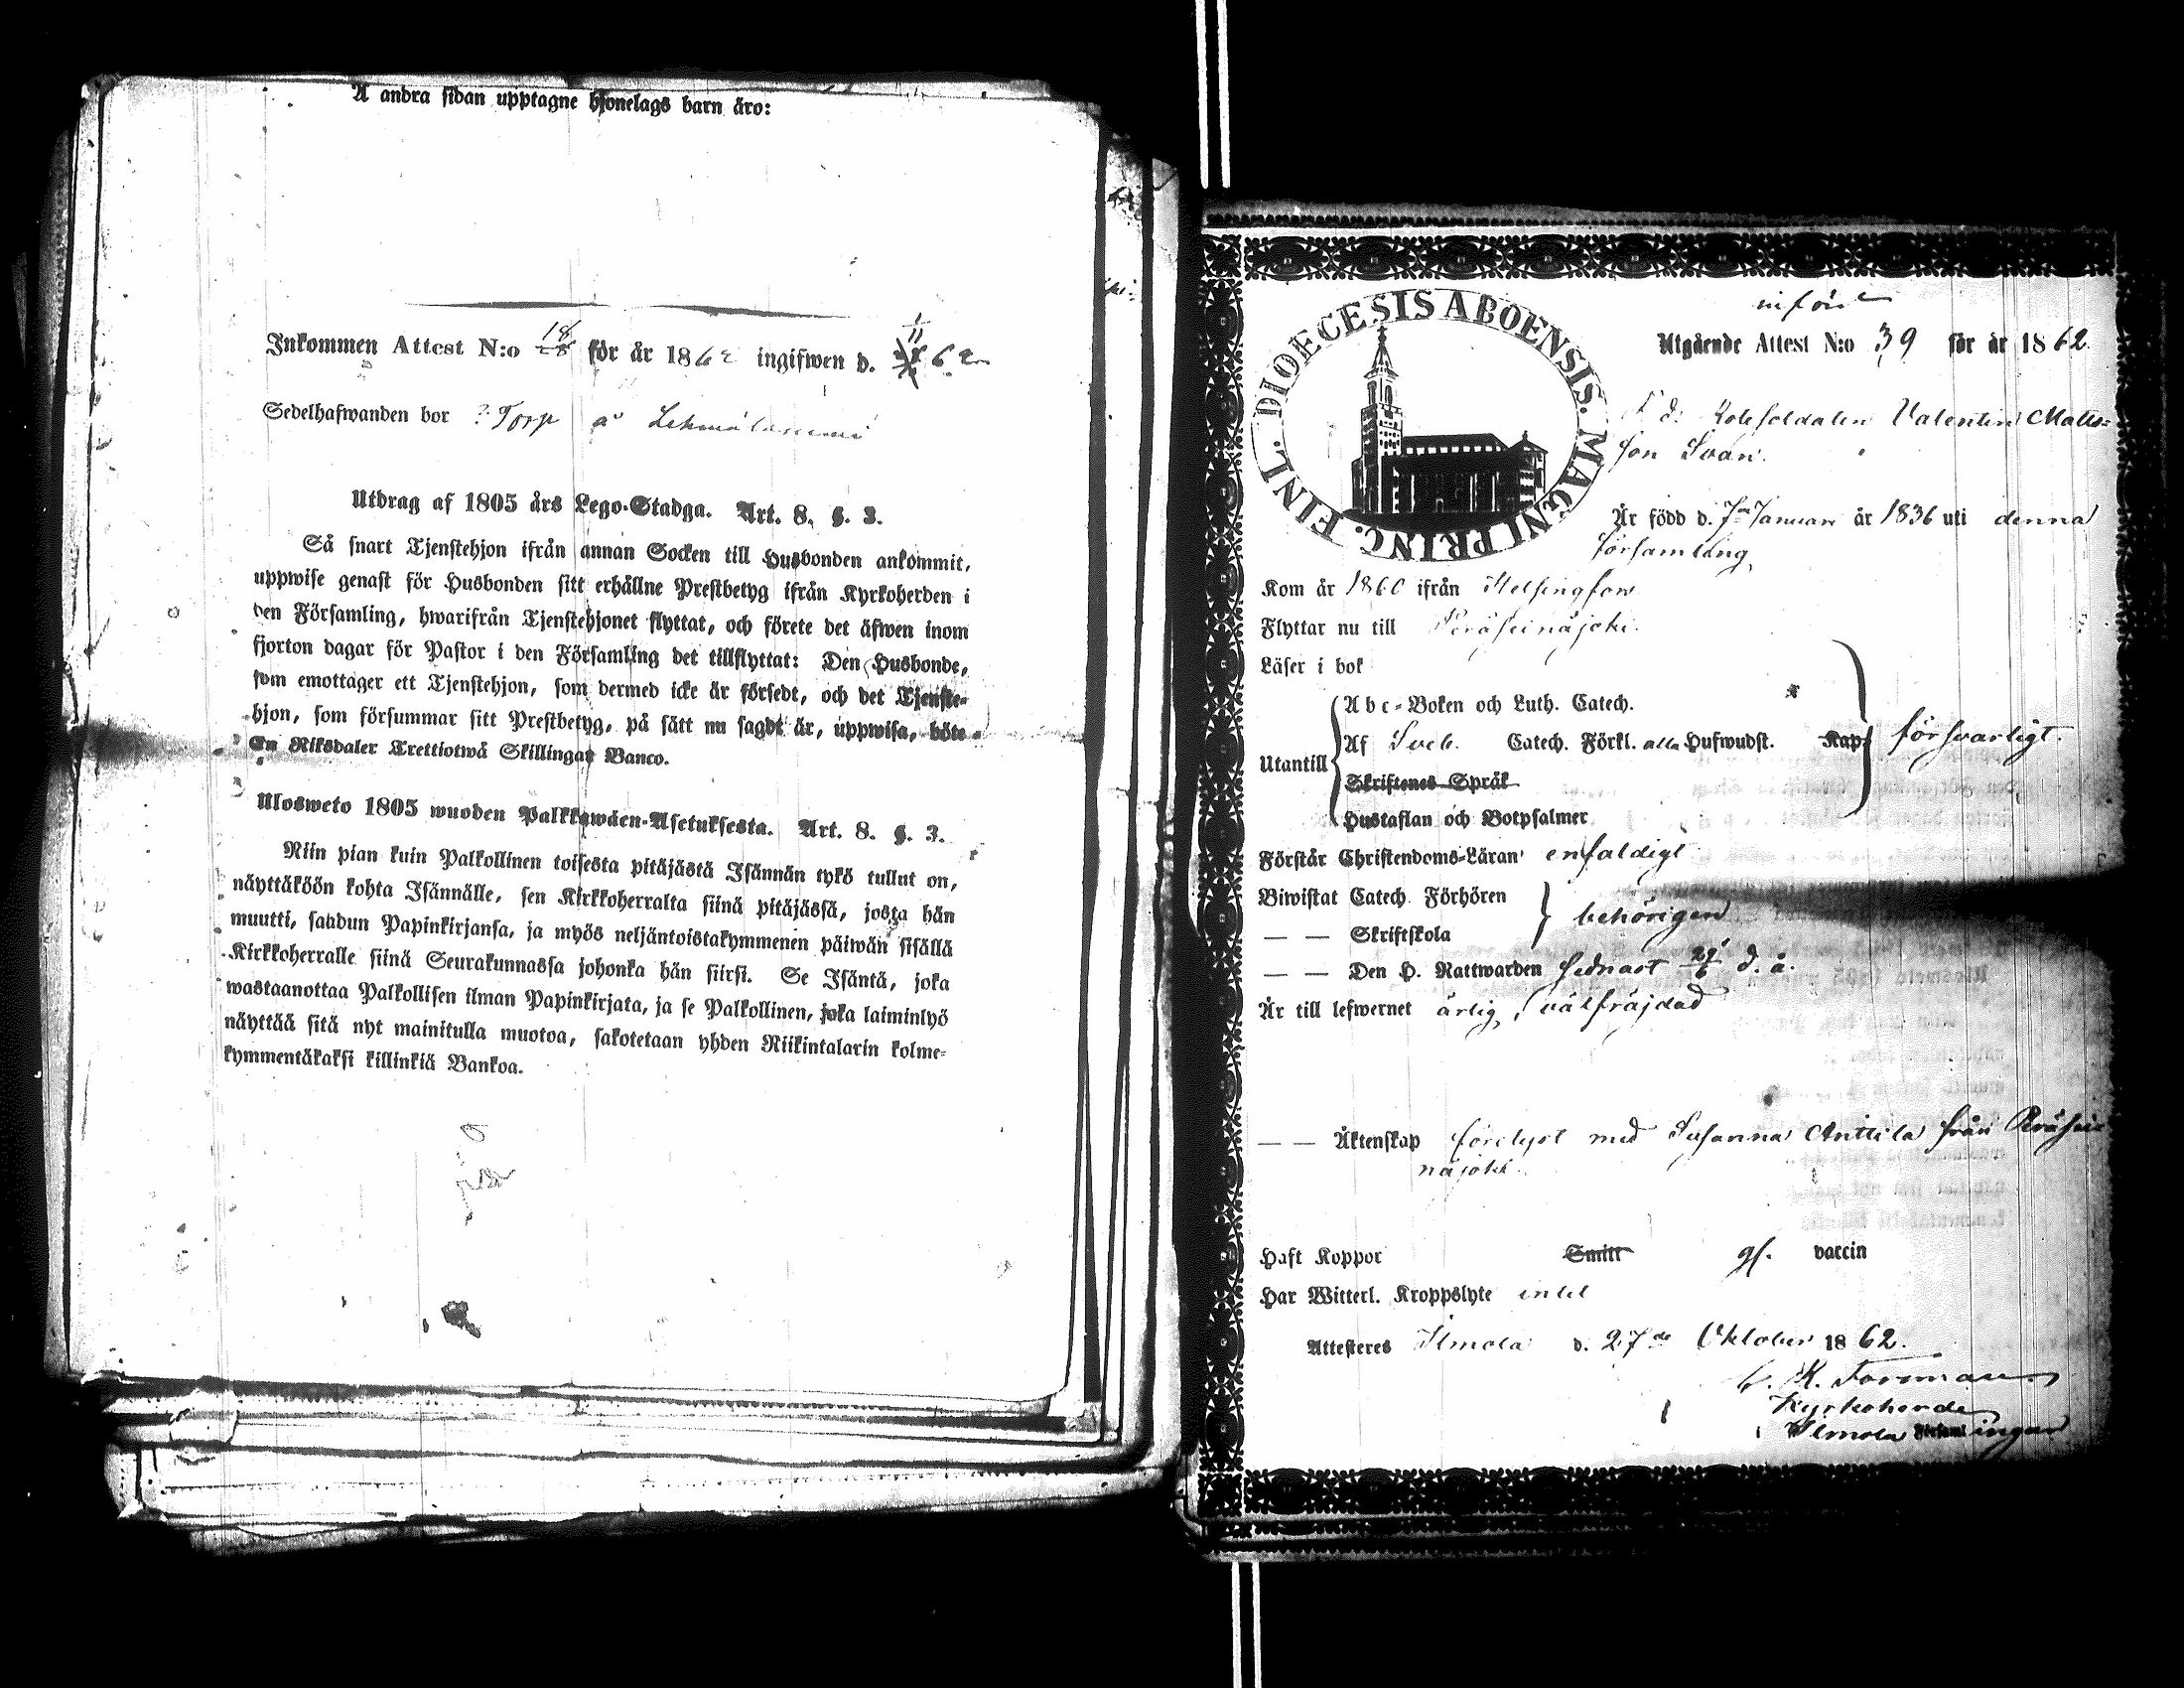 Å andra sidan upptagne hjonelags barn äro:
Inkommen Attest N:o 18 för år 1862 ingifwen d. 1/11 62
Sedelhafwanden bor Torp å
Utdrag af 1805 års Lego-Stadga. Art. 8. §. 3.
Så snart Tjenstehjon ifrån annan Socken till Husbonden ankommit,
uppwise genast för Husbonden sitt erhållne Prestbetyg ifrån Kyrkoherden i
den Församling, hwarifrån Tjenstehjonet flyttat, och förete det äfwen inom
fjorton dagar för Pastor i den Församling det tillflyttat: Den Husbonde,
som emottager ett Tjenstehjon, som dermed icke är försedt, och det Tjenste-
hjon, som försummar sitt Prestbetyg, på sätt nu sagdt är, uppwisa, böte
En Riksdaler Trettiotwå Skillingar Banco.
Ulosweto 1805 wuoden Palkkawäen-Asetuksesta. Art. 8. §. 3.
Niin pian kuin Palkollinen toisesta pitäjästä Isännän tykö tullut on,
näyttäköön kohta Isännälle, sen Kirkkoherralta siinä pitäjässä, josta hän
muutti, saadun Papinkirjansa, ja myös neljäntoistakymmenen päiwän sisällä
Kirkkoherralle siinä Seurakunnassa johonka hän siirsi. Se Isäntä, joka
wastaanottaa Palkollisen ilman Papinkirjata, ja se Palkollinen, joka laiminlyö
näyttää sitä nyt mainitulla muotoa, sakotetaan yhden Riikintalarin kolme-
kymmentäkaksi killinkiä Bankoa.
införd
DIOECESIS ABOENSIS. MAGNI PRINC. FINL.
Utgående Attest N:o 39 för år 1862.
F d. Rotesoldaten Valentin Matts-
son Svan.
Är född d. 7de Januari år 1836 uti denna
församling,
Kom år 1860 ifrån Helsingfors
Flyttar nu till Peräseinäjoki.
Läser i bok
Utantill
Abc-Boken och Luth. Catech.
Af Sveb. Catech. Förkl. alla Hufwudst. Kap. försvarligt.
Skriftenes Språk
Hustaflan och Botpsalmer
Förstår Christendoms-Läran enfaldigt
Biwistat Catech. Förhören
behörigen
— — Skriftskola
— — Den H. Nattwarden sednast 29/6 d. å.
Är till lefwernet ärlig, välfräjdad
— — Äktenskap förelyst med Susanna Anttila från Peräsei-
näjoki.
Haft Koppor Smitt gf. vaccin
Har Witterl. Kroppslyte intet
Attesteras Ilmola d. 27de Oktober 1862.
K. Forsman
Kyrkoherde
Ilmola Församlingen